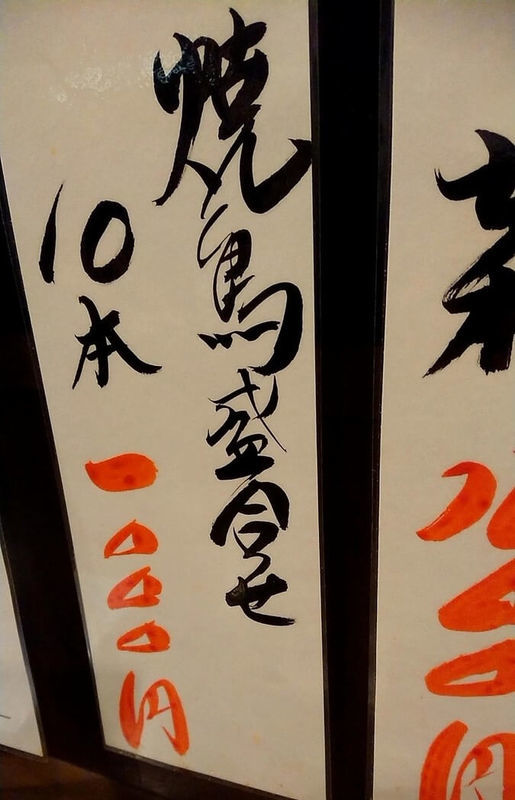 焼鳥盛合せ
10本
一〇〇〇円